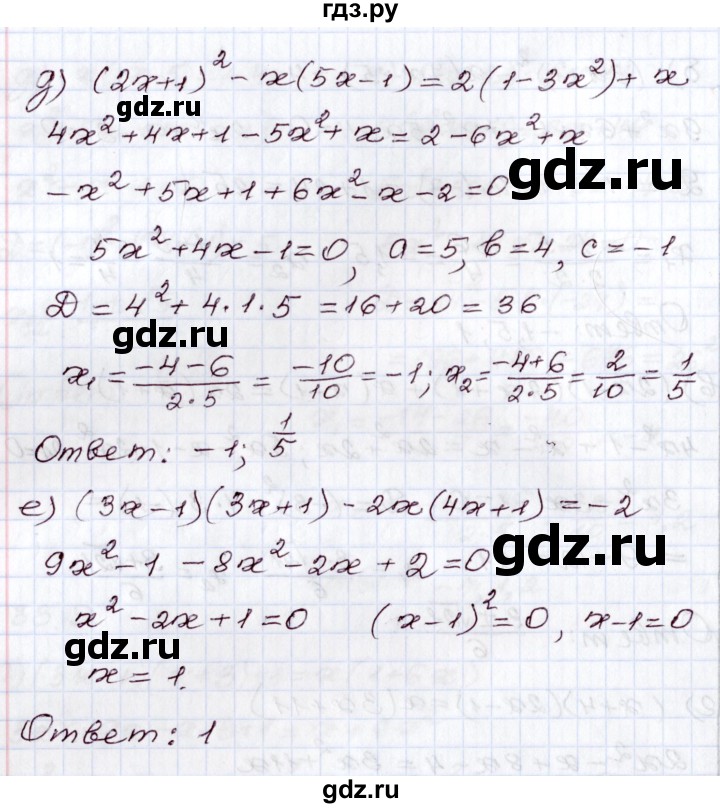 гдз.ру
д) (2x+1)² - x(5x-1) = 2(1-3x²) + x
4x² + 4x + 1 - 5x² + x = 2 - 6x² + x
-x² + 5x + 1 + 6x² - x - 2 = 0
gdz.ru
5x² + 4x - 1 = 0, a = 5, b = 4, c = -1
D = 4² + 4·1·5 = 16 + 20 = 36
gdz.ru
x₁ = (-4-6)/(2·5) = -10/10 = -1; x₂ = (-4+6)/(2·5) = 2/10 = 1/5
Ответ: -1; 1/5
е) (3x-1)(3x+1) - 2x(4x+1) = -2
9x² - 1 - 8x² - 2x + 2 = 0
gdz.ru
x² - 2x + 1 = 0 (x-1)² = 0, x-1 = 0
gdz.ru
x = 1.
Ответ: 1
gdz.ru